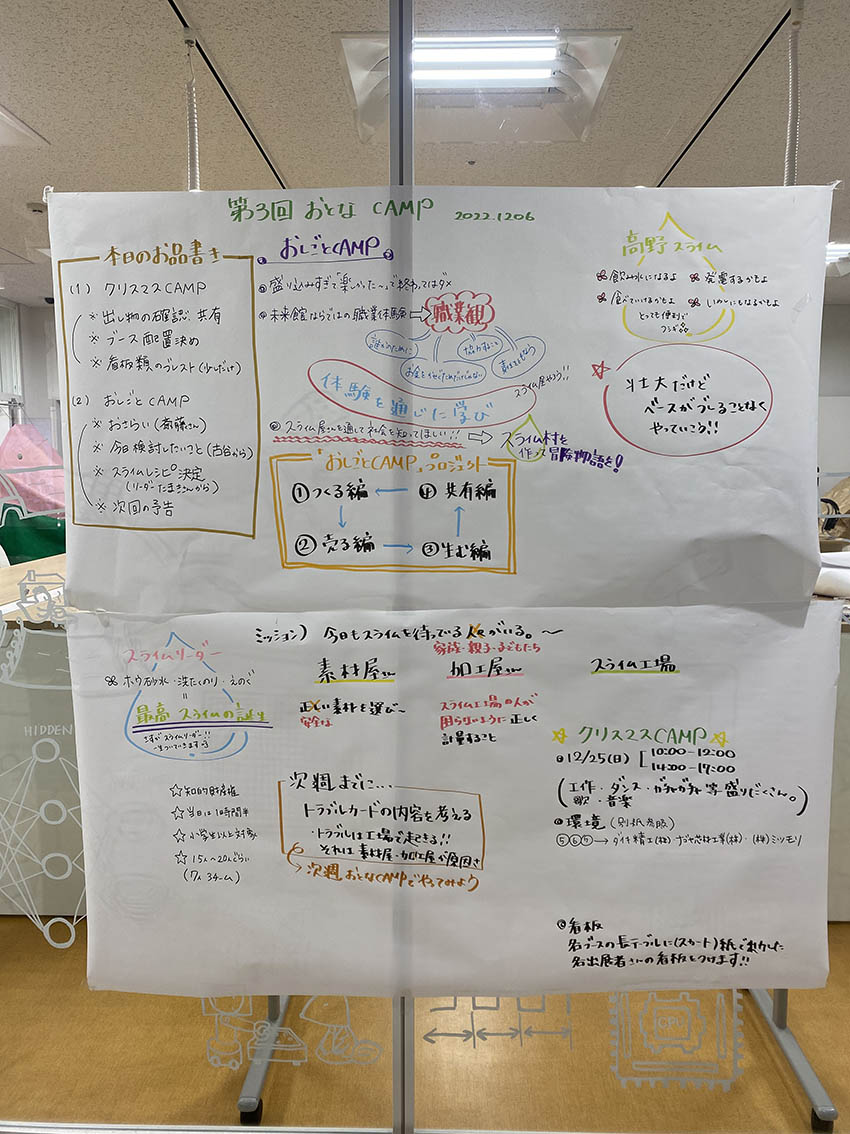 第3回 おとな CAMP 2022.1206
本日のお品書き
(1) クリスマスCAMP
※ 出し物の確認、共有
※ ブース配置決め
※ 看板類のブレスト(少しだけ)
(2) おしごとCAMP
※ おさらい(斎藤さん)
※ 今日検討したいこと(古谷から)
※ スライムレシピ決定
(リーダーたまきさんから)
※ 次回の予告
おしごとCAMP
盛り込みすぎて「楽しかった〜」で終わってはダメ
未来館ならではの職業体験 ⇒ 職業観
誰かのために
協力すること
お金をかせぐためだけじゃない
体験を通じた学び
スライム屋やろう!!
スライム屋さんを通して社会を知ってほしい!! ⇒ スライム村を
作って冒険物語を!
「おしごとCAMP」プロジェクト
① つくる編 ← ④ 共有編
② 売る編 → ③ 生む編
高野スライム
飲み水になるよ
発電するかもよ
食べていけるかもよ
とっても便利で
フシギ
壮大だけど
ベースがブレることなく
やっていこう!!
ミッション) 今日もスライムを待っている人々がいる。〜
家族・親子・子どもたち
スライムリーダー
ホウ砂水・洗たくのり・えのぐ
=
最高スライムの誕生
さすがスライムリーダー!!
素材屋さん
正しい素材を選び〜
安全な
加工屋さん
スライム工場の人が
困らないように正しく
計量すること
スライム工場
☆ 知的財産権
☆ 当日は1時間半
☆ 小学生以上対象
☆ 15人〜20人ぐらい
次週までに...
トラブルカードの内容を考える
・トラブルは工場で起きる!!
それは素材屋・加工屋が原因さ
→ 次週おとなCAMPでやってみよう
☆ クリスマスCAMP ☆
12/25(日) [10:00-12:00
14:00-17:00
(工作・ダンス・ガチャガチャ等盛りだくさん。)
歌・音楽
環境 (別紙参照)
⑤⑥⑦ → ダイキ精工(株)・
(株)ミツモリ
看板
各ブースの長テーブルに(スカート)紙で
各出展者さんの看板をつけます!!
HIDDEN
CPU